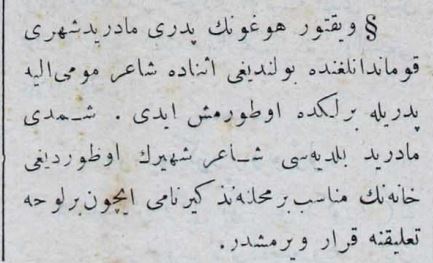 § ویقتور هوغونك پدری مادریدشهری
قوماندانلغنده بولندیغی اثناده شاعر مومی‌الیه
پدریله برلكده اوطورمش ایدی . شـمدی
مادرید بلدیه‌سی شـاعر شهیرك اوطوردیغی
خانه‌نك مناسب برمحلنه‌تذكیرنامی ایچون‌برلوحه
تعلیقنه قرار ویرمشدر.